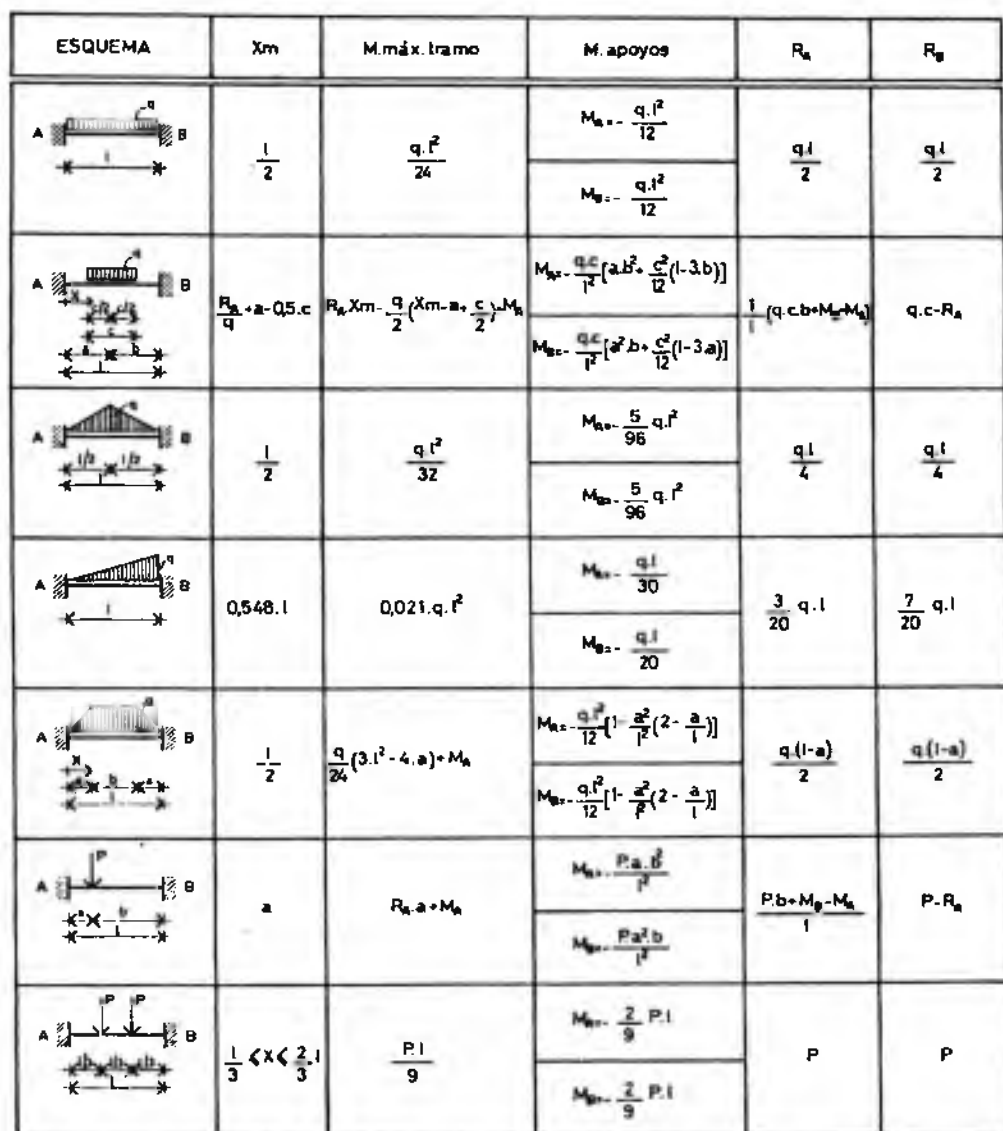 ESQUEMA Xm M.máx.tramo M.apoyos R_A R_B
A B q l
l/2
q.l²/24
M_A=- q.l²/12
M_B=- q.l²/12
q.l/2
q.l/2
A B q X c/2 c/2 c a b l
R_A/q +a-0,5.c
R_A.Xm- q/2 (Xm-a+ c/2)-M_A
M_A=- q.c/l² [a.b²+ c²/12 (l-3.b)]
M_B=- q.c/l² [a².b+ c²/12 (l-3.a)]
1/l (q.c.b+M_B-M_A)
q.c-R_A
A B q l/2 l/2 l
l/2
q.l²/32
M_A=- 5/96 q.l²
M_B=- 5/96 q.l²
q.l/4
q.l/4
A B q l
0,548.l
0,021.q.l²
M_A=- q.l/30
M_B=- q.l/20
3/20 q.l
7/20 q.l
A B q X a b a l
l/2
q/24 (3.l²-4.a)+M_A
M_A=- q.l²/12 [1- a²/l² (2- a/l)]
M_B=- q.l²/12 [1- a²/l² (2- a/l)]
q.(l-a)/2
q.(l-a)/2
A B P a b l
a
R_A.a+M_A
M_A=- P.a.b²/l²
M_B=- P.a².b/l²
P.b+M_B-M_A/l
P-R_A
A B P P l
l/3 <X< 2/3.l
P.l/9
M_A=- 2/9 P.l
M_B=- 2/9 P.l
P
P